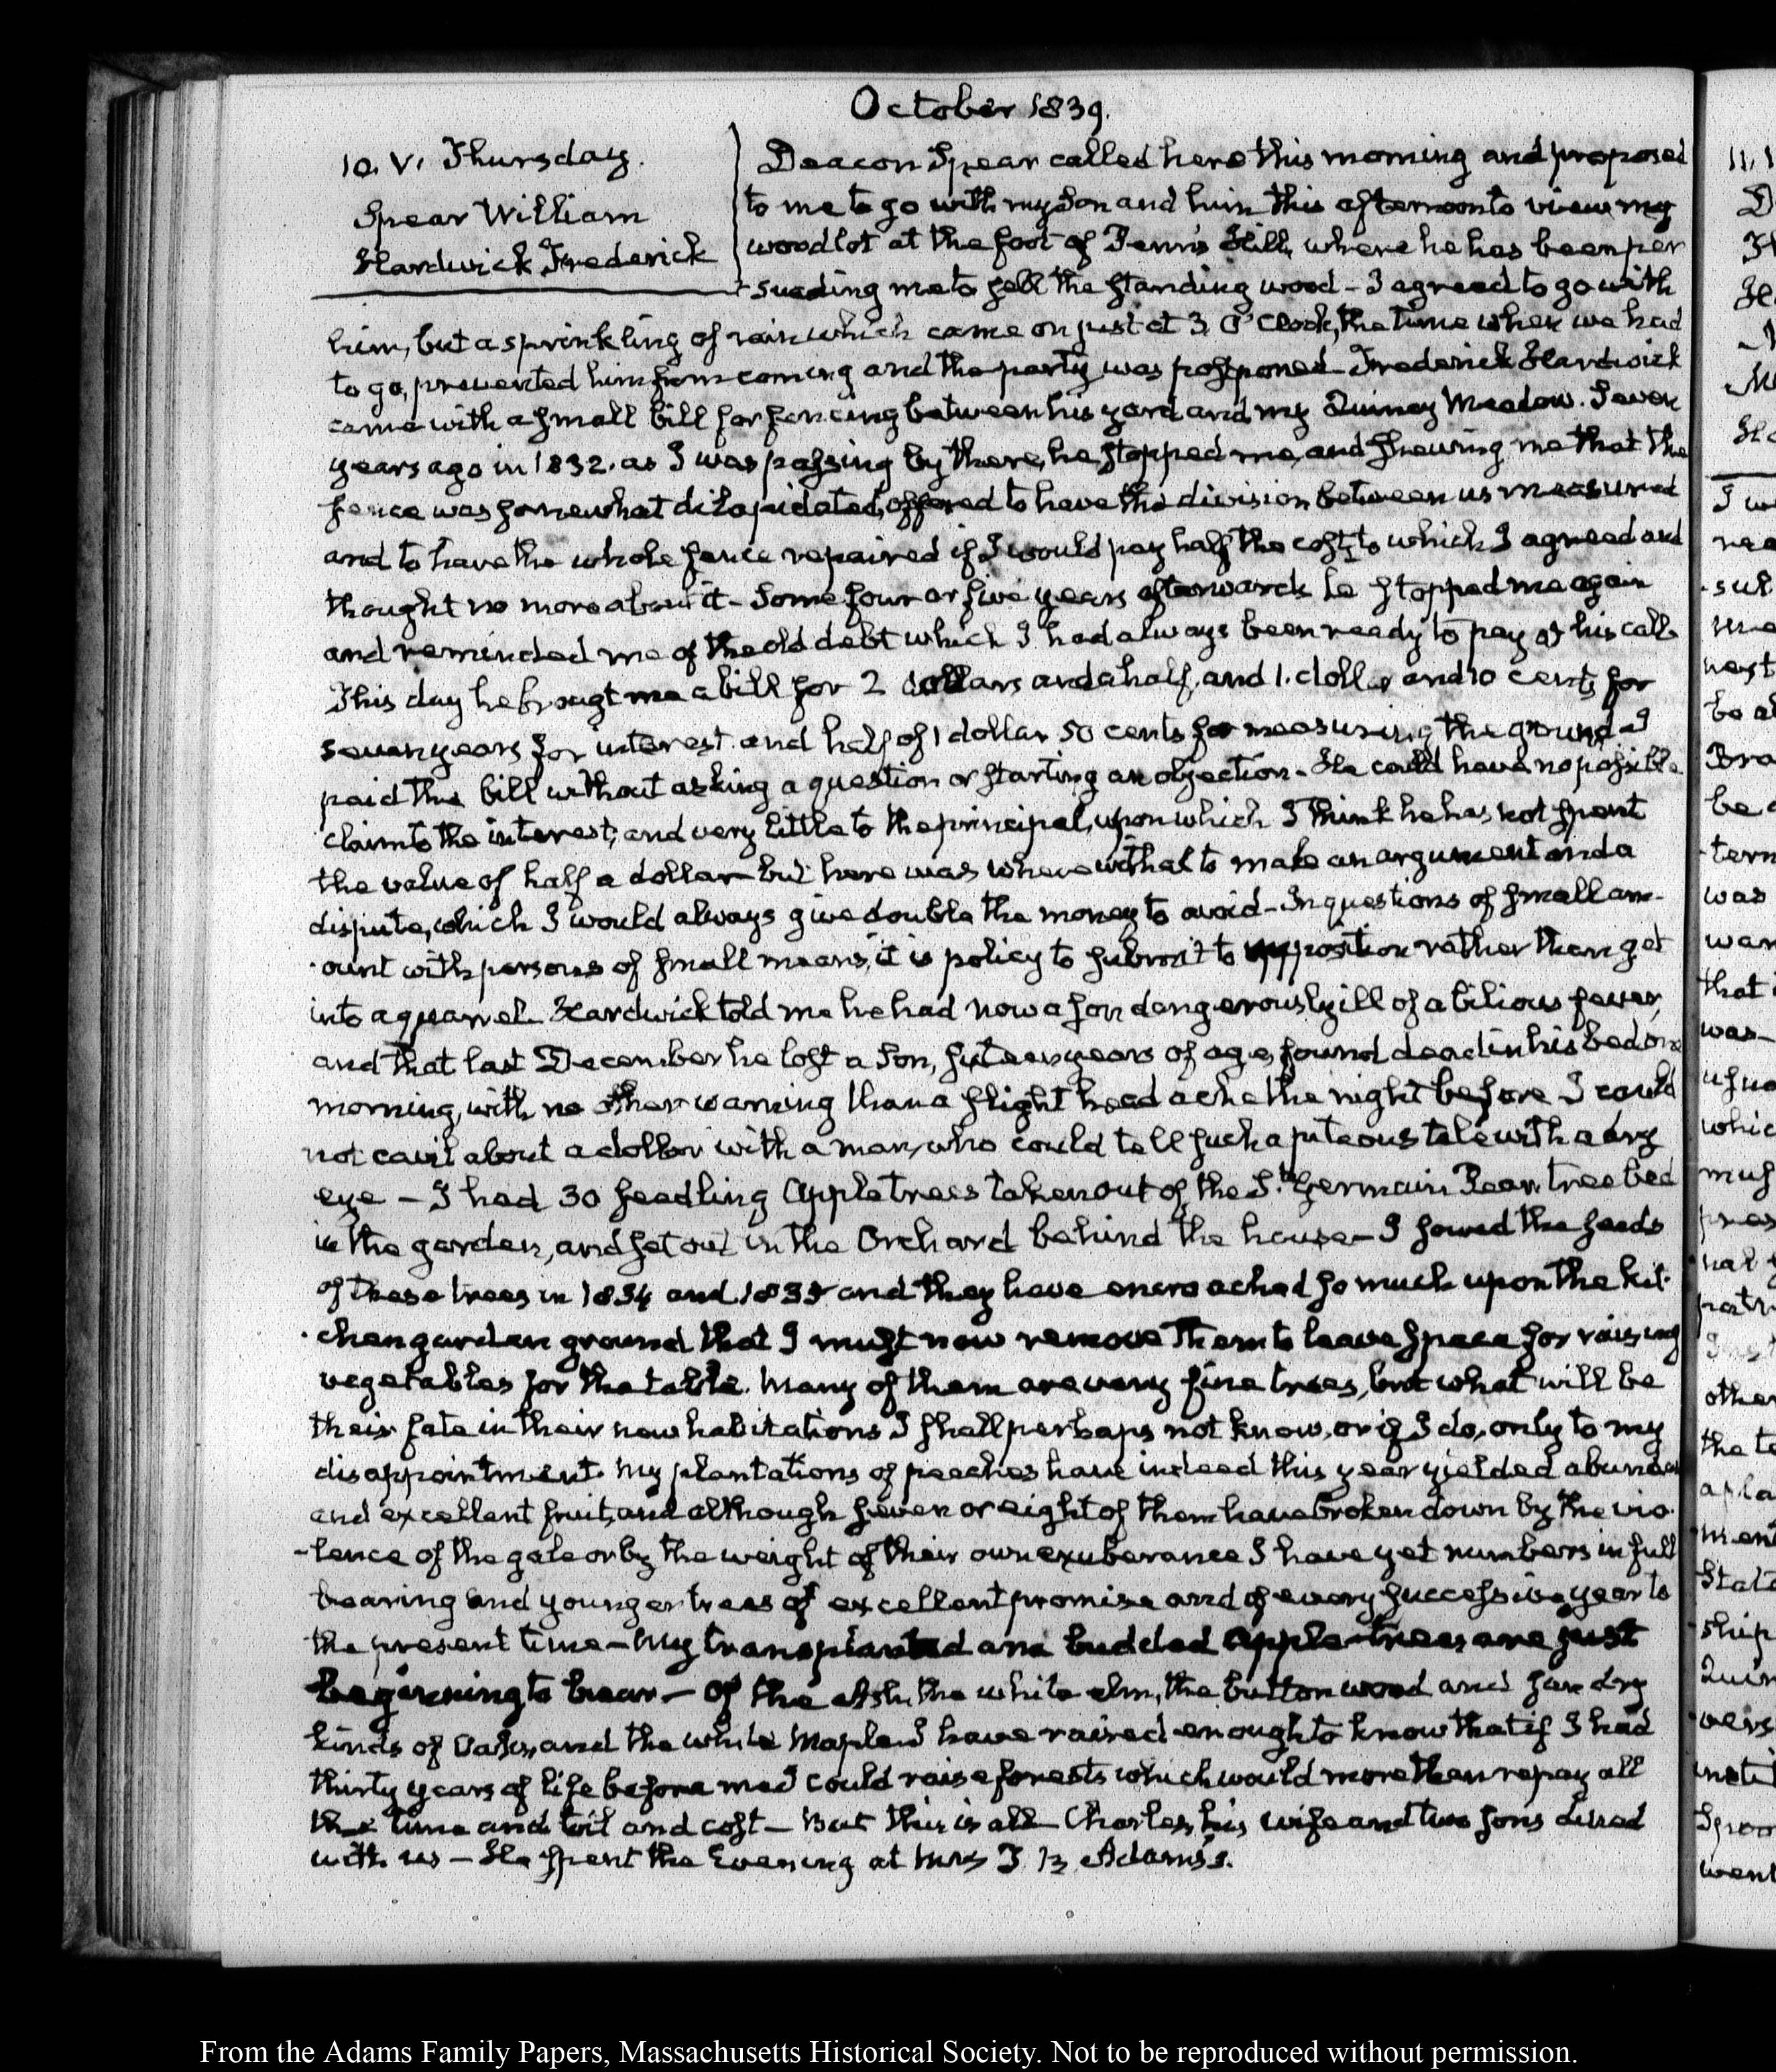 October 1839.
10. V. Thursday.
Spear William
Hardwick Frederick
Deacon Spear called here this morning and proposed
to me to go with my Son and him this afternoon to view my
woodlot at the foot of Penn's Hill, where he has been per
-suading me to sell the standing wood - I agreed to go with
him, but a sprinkling of rain which came on just at 3 O'Clock, the time when we had
to go, prevented him from coming and the party was postponed - Frederick Hardwick
came with a small bill for fencing between his yard and my Quincy Meadow. Seven
years ago in 1832. as I was passing by there, he stopped me, and shewing me that the
fence was somewhat dilapidated, offered to have the division between us measured
and to have the whole fence repaired if I would pay half the cost, to which I agreed and
thought no more about it - Some four or five years afterwards he stopped me again
and reminded me of the old debt which I had always been ready to pay at his call.
This day he brougt me a bill for 2 dollars and a half, and 1. dollar and 10 cents for
seven years for interest. and half of 1 dollar 50 cents for measuring the ground - I
paid the bill without asking a question or starting an objection - He could have no possible
claim to the interest, and very little to the principal, upon which I think he has not spent
the value of half a dollar - but here was wherewithal to make an argument and a
dispute, which I would always give double the money to avoid - In questions of small am-
-ount with persons of small means, it is policy to submit to imposition rather than get
into a quarrel. Hardwick told me he had now a son dangerously ill of a bilious fever,
and that last December he lost a Son, fifteen years of age, found dead in his bed one
morning, with no other warning than a slight head ache the night before. I could
not cavil about a dollar with a man, who could tell such a piteous tale with a dry
eye - I had 30 seedling Apple trees taken out of the St. Germain Pear tree bed
in the garden, and set out in the Orchard behind the house - I sowed the seeds
of these trees in 1834 and 1835 and they have encroached so much upon the kit-
-chen garden ground that I must now remove them to leave space for raising
vegetables for the table. Many of them are very fine trees, but what will be
their fate in their new habitations I shall perhaps not know, or if I do, only to my
disappointment. My plantations of peaches have indeed this year yielded abundant
and excellent fruit, and although seven or eight of them have broken down by the vio-
-lence of the gale or by the weight of their own exuberance I have yet numbers in full
bearing and younger trees of excellent promise and of every successive year to
the present time - My transplanted and budded Apple-trees are just
beginning to bear - Of the Ash, the white elm, the button wood and sundry
kinds of Oaks, and the white Maple I have raised enough to know that if I had
thirty years of life before me I could raise forests which would more than repay all
the time and toil and cost - But this is all - Charles, his wife and two sons dined
with us - He spent the Evening at Mrs T. B. Adams's.
From the Adams Family Papers, Massachusetts Historical Society. Not to be reproduced without permission.